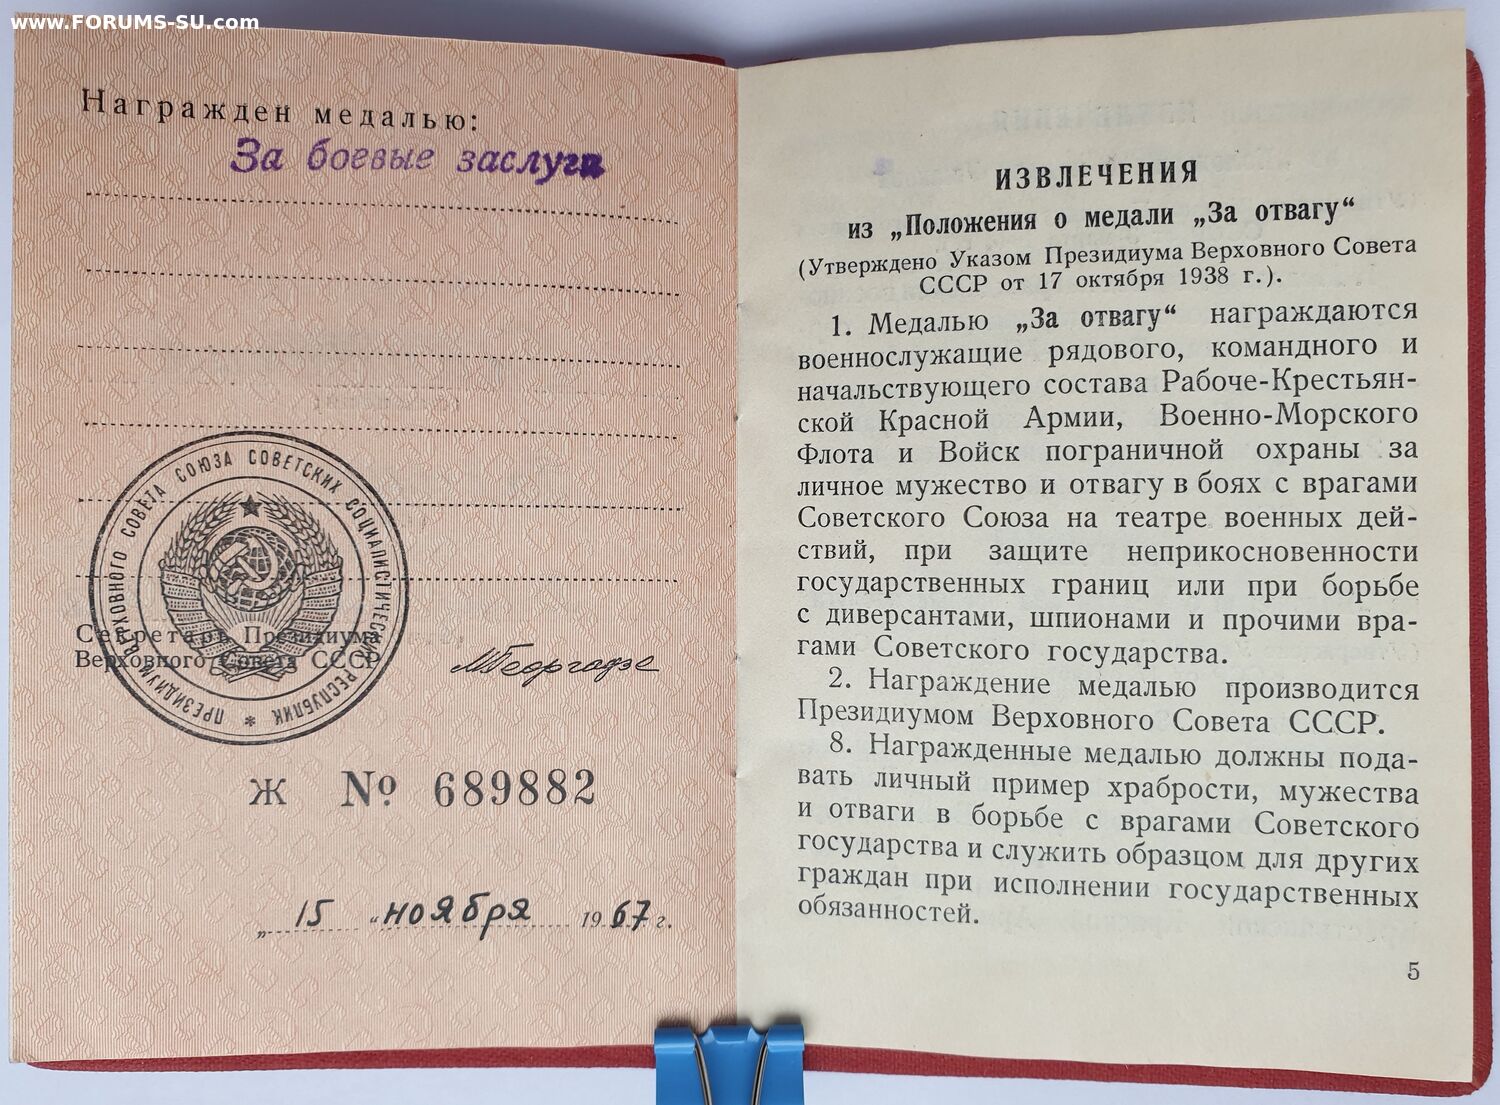 www.FORUMS-SU.com
Награжден медалью:
За боевые заслуги
ПРЕЗИДИУМ ВЕРХОВНОГО СОВЕТА СОЮЗА СОВЕТСКИХ СОЦИАЛИСТИЧЕСКИХ РЕСПУБЛИК *
Секретарь Президиума
Верховного Совета СССР
МГеоргадзе
Ж № 689882
„ 15 “ ноября 1967 г.
ИЗВЛЕЧЕНИЯ
из „Положения о медали „За отвагу“
(Утверждено Указом Президиума Верховного Совета
СССР от 17 октября 1938 г.).
1. Медалью „За отвагу“ награждаются
военнослужащие рядового, командного и
начальствующего состава Рабоче-Крестьян-
ской Красной Армии, Военно-Морского
Флота и Войск пограничной охраны за
личное мужество и отвагу в боях с врагами
Советского Союза на театре военных дей-
ствий, при защите неприкосновенности
государственных границ или при борьбе
с диверсантами, шпионами и прочими вра-
гами Советского государства.
2. Награждение медалью производится
Президиумом Верховного Совета СССР.
8. Награжденные медалью должны пода-
вать личный пример храбрости, мужества
и отваги в борьбе с врагами Советского
государства и служить образцом для других
граждан при исполнении государственных
обязанностей.
5